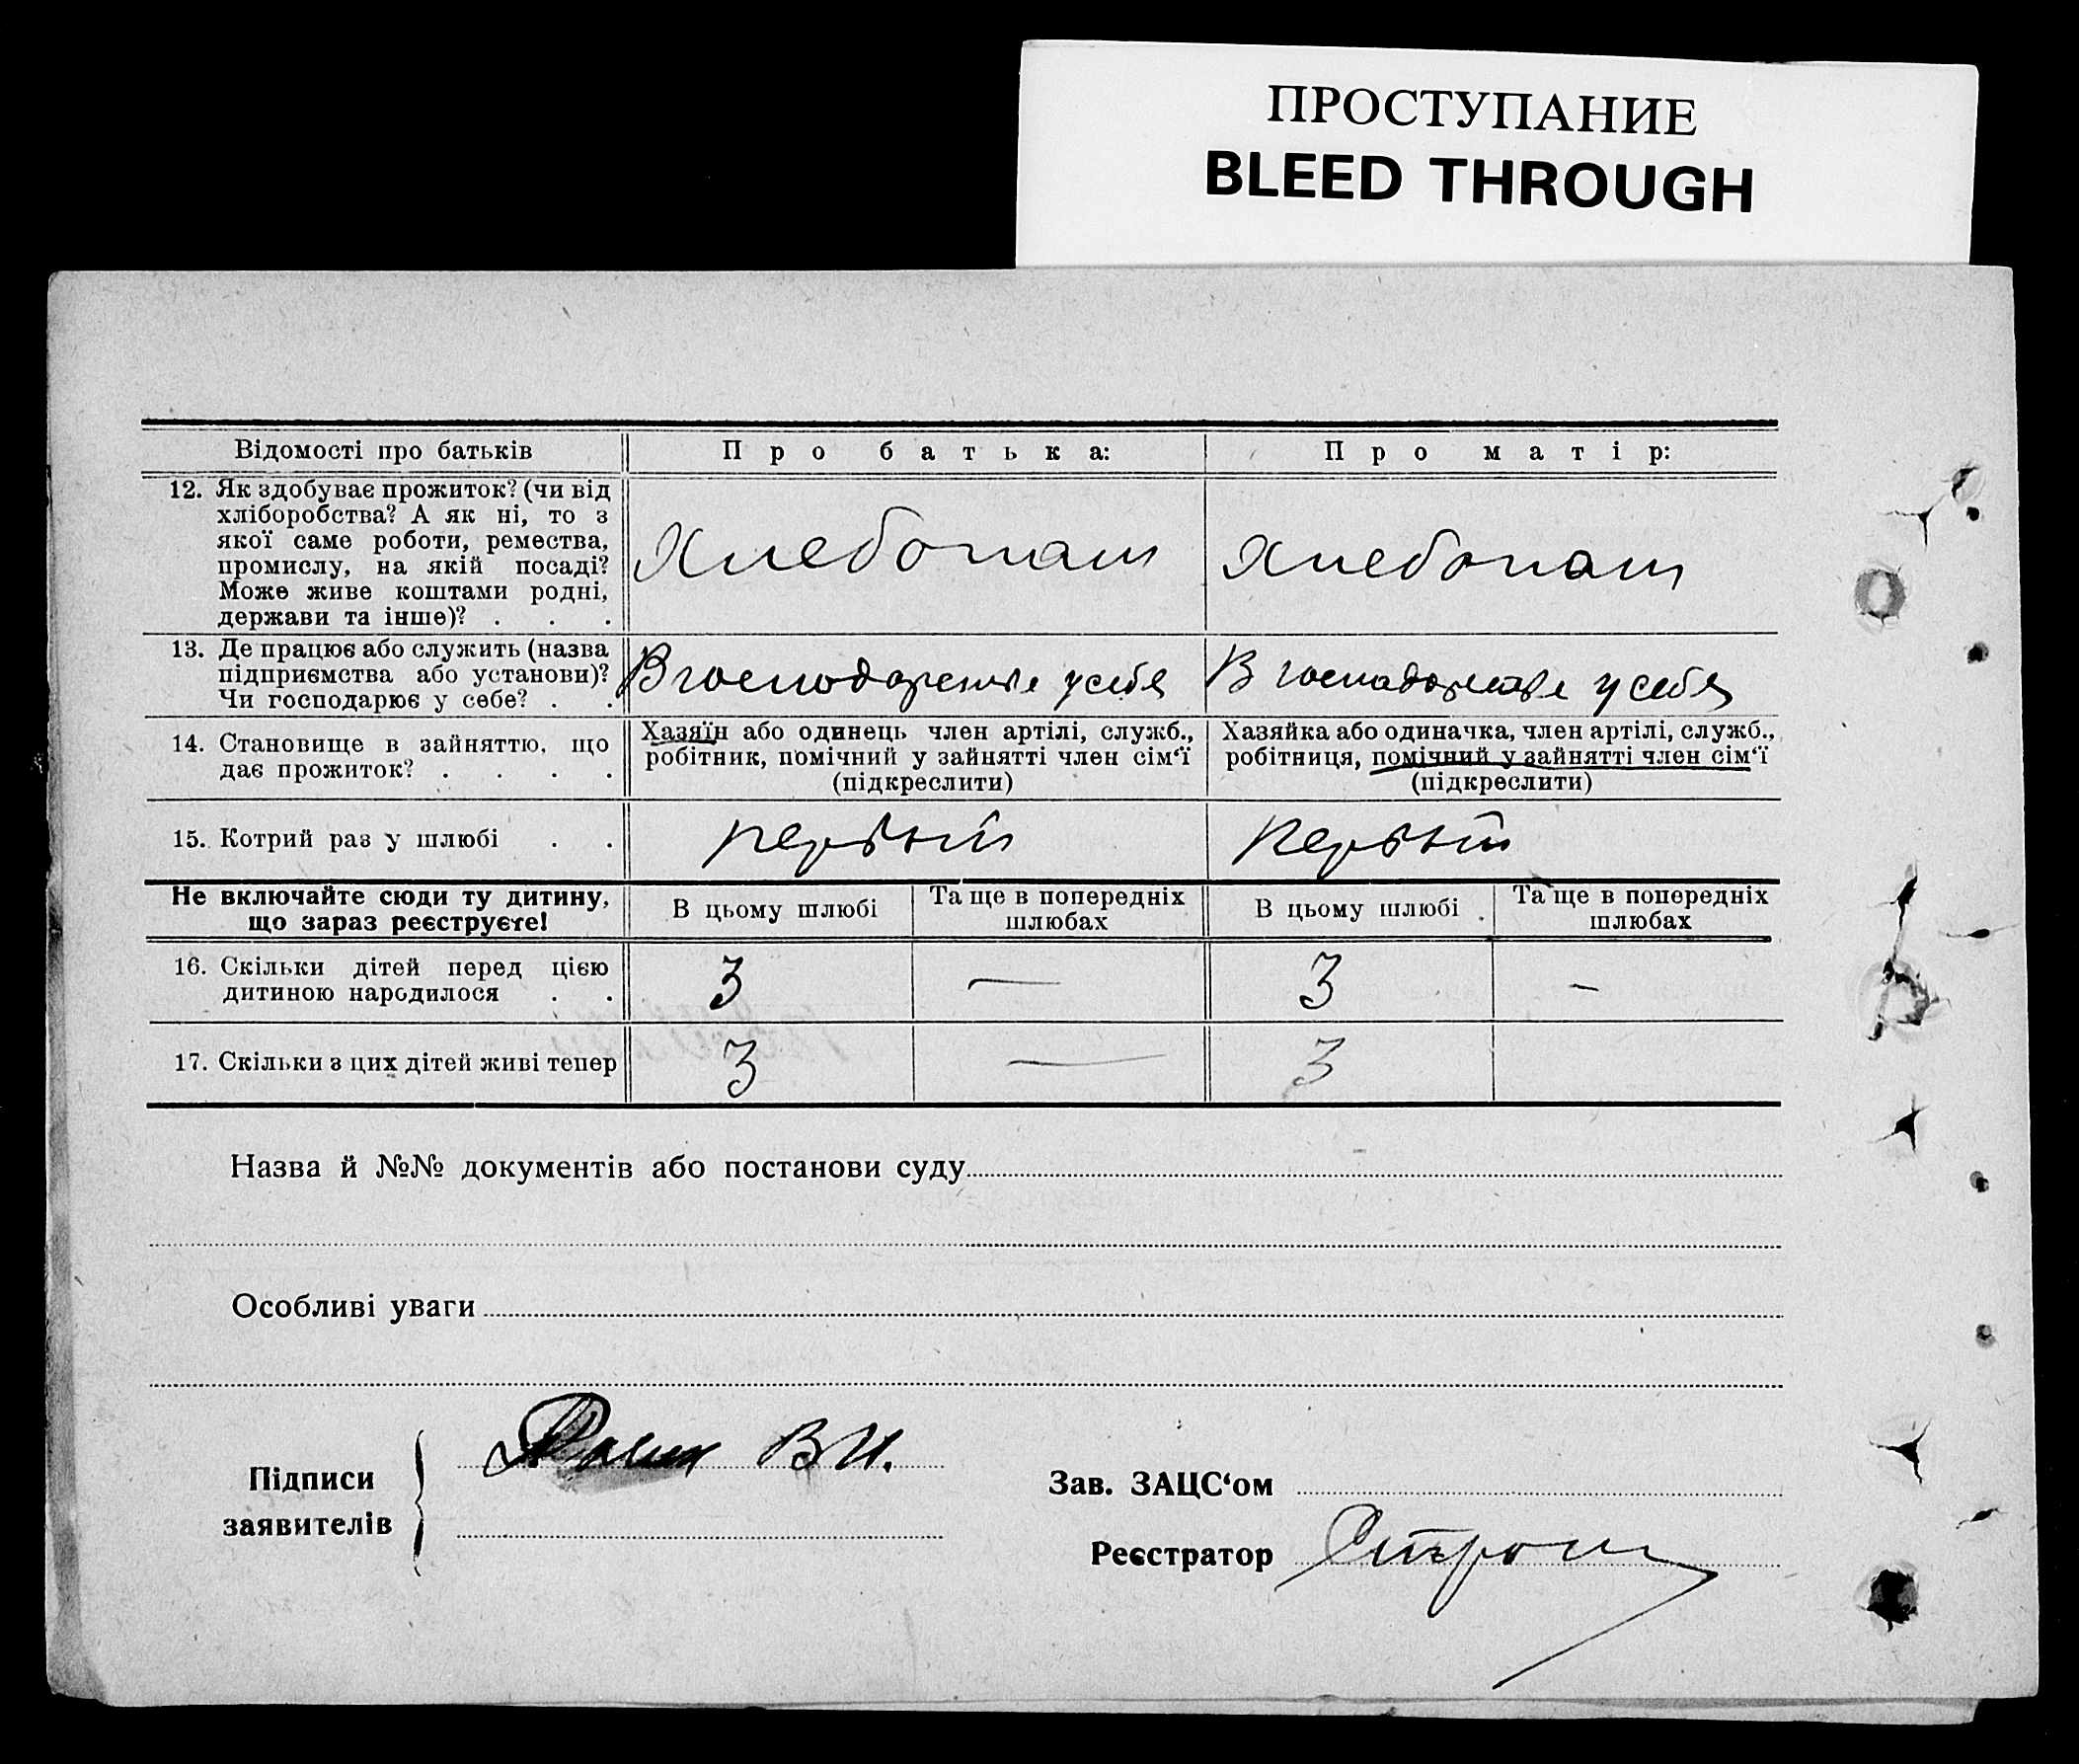 ПРОСТУПАНИЕ
BLEED THROUGH
Відомості про батьків
Про батька:
Про матір:
12. Як здобуває прожиток? (чи від
хліборобства? А як ні, то з
якої саме роботи, ремества,
промислу, на якій посаді?
Може живе коштами родні,
держави та інше)? . . .
Хлебопаш
Хлебопаш
13. Де працює або служить (назва
підприємства або установи)?
Чи господарює у себе? . .
В господарстве у себя
В господарстве у себя
14. Становище в зайняттю, що
дає прожиток? . . . .
Хазяїн або одинець член артілі, служб.,
робітник, помічний у зайнятті член сім‘ї
(підкреслити)
Хазяйка або одиначка, член артілі, служб.,
робітниця, помічний у зайнятті член сім‘ї
(підкреслити)
15. Котрий раз у шлюбі . .
первый
первый
Не включайте сюди ту дитину,
що зараз реєструєте!
В цьому шлюбі
Та ще в попередніх
шлюбах
В цьому шлюбі
Та ще в попередніх
шлюбах
16. Скільки дітей перед цією
дитиною народилося . .
3
—
3
-
17. Скільки з цих дітей живі тепер
3
—
3
Назва й №№ документів або постанови суду
Особливі уваги
Підписи
заявителів
В И.
Зав. ЗАЦС‘ом
Реєстратор